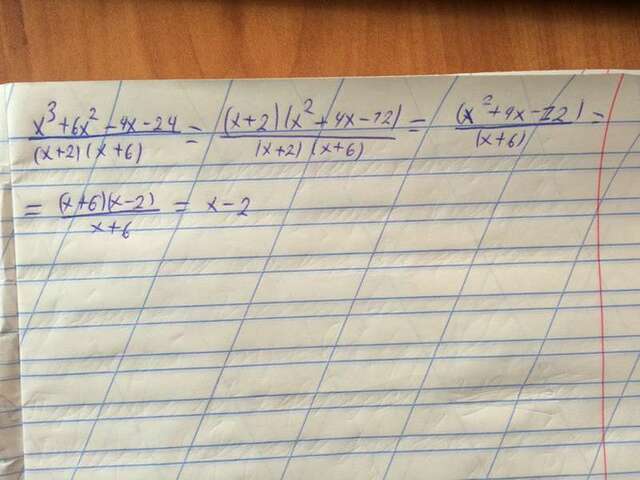 (x³+6x²-4x-24)/((x+2)(x+6)) = ((x+2)(x²+4x-12))/((x+2)(x+6)) = (x²+4x-12)/(x+6) =
= ((x+6)(x-2))/(x+6) = x-2